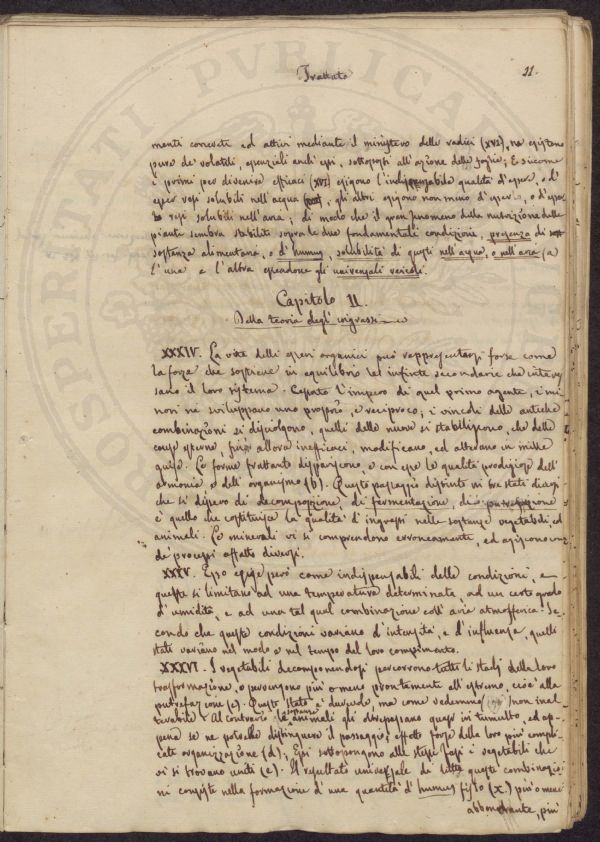 Trattato
11.
menti concreti ed attivi mediante il ministero delle radici (XVI), ne esistono
pure de' volatili, essenziali anch'essi, sottoposti all'azione delle foglie; E siccome
i primi per divenire efficaci (XVI) esigono l'indispensabile qualità d'essere, o d'
esser resi solubili nell'acqua, gli altri esigono non meno d'essere, o d'esser
resi solubili nell'aria; di modo che il gran fenomeno della nutrizione delle
piante sembra stabilirsi sopra le due fondamentali condizioni, presenza di
sostanza alimentaria, o d'humus, solubilità di questi nell'acqua, o nell'aria (a
l'una e l'altra essendone gli universali veicoli.
Capitolo II.
Della teoria degl'ingrassi
XXXIV. La vita delli esseri organici può rappresentarsi forse come
la forza che sostiene in equilibrio le infinite secondarie che interes
sano il loro sistema. Cessato l'impero di quel primo agente, i mi
nori ne sviluppano uno proprio, e reciproco; i vincoli delle antiche
combinazioni si disciolgono, quelli delle nuove si stabiliscono, che delle
cause esterne, fino allora inefficaci, modificano, ed alterano in mille
guise. Le forme frattanto dispariscono, e con esse le qualità prodigiose dell'
armonia e dell'organismo (b). Questo passaggio distinto in tre stadi diversi
che si dissero di decomposizione, di fermentazione, di putrefazione
è quello che costituisce la qualità d'ingrassi nelle sostanze vegetabili ed
animali. Le minerali vi si comprendono erroneamente, ed agiscono con
de' processi affatto diversi.
XXXV. Esso esige però come indispensabili delle condizioni, e
queste si limitano ad una temperatura determinata, ad un certo grado
d'umidità, e ad una tal qual combinazione coll'aria atmosferica. Se-
condo che queste condizioni variano d'intensità, e d'influenza, quelli
stati variano nel modo e nel tempo del loro compimento.
XXXVI. I vegetabili decomponendosi percorrono tutti li stadj della loro
trasformazione, e pervengono più o meno prontamente all'estremo, cioè alla
putrefazione (c). Questo stato è durevole, ma come vedremo non inal
terabile. Al contrario le sostanze animali gli oltrepassano quasi in tumulto, ed ap-
pena se ne potrebbe distinguere il passaggio; effetto forse della loro più compli-
cata organizzazione (d); Essi sottopongono alle stesse fasi i vegetabili che
vi si trovano uniti (e). Il resultato universale di tutte queste combinazio
ni consiste nella formazione d'una quantità d'humus fisso (x.) più o meno
abbondante, più